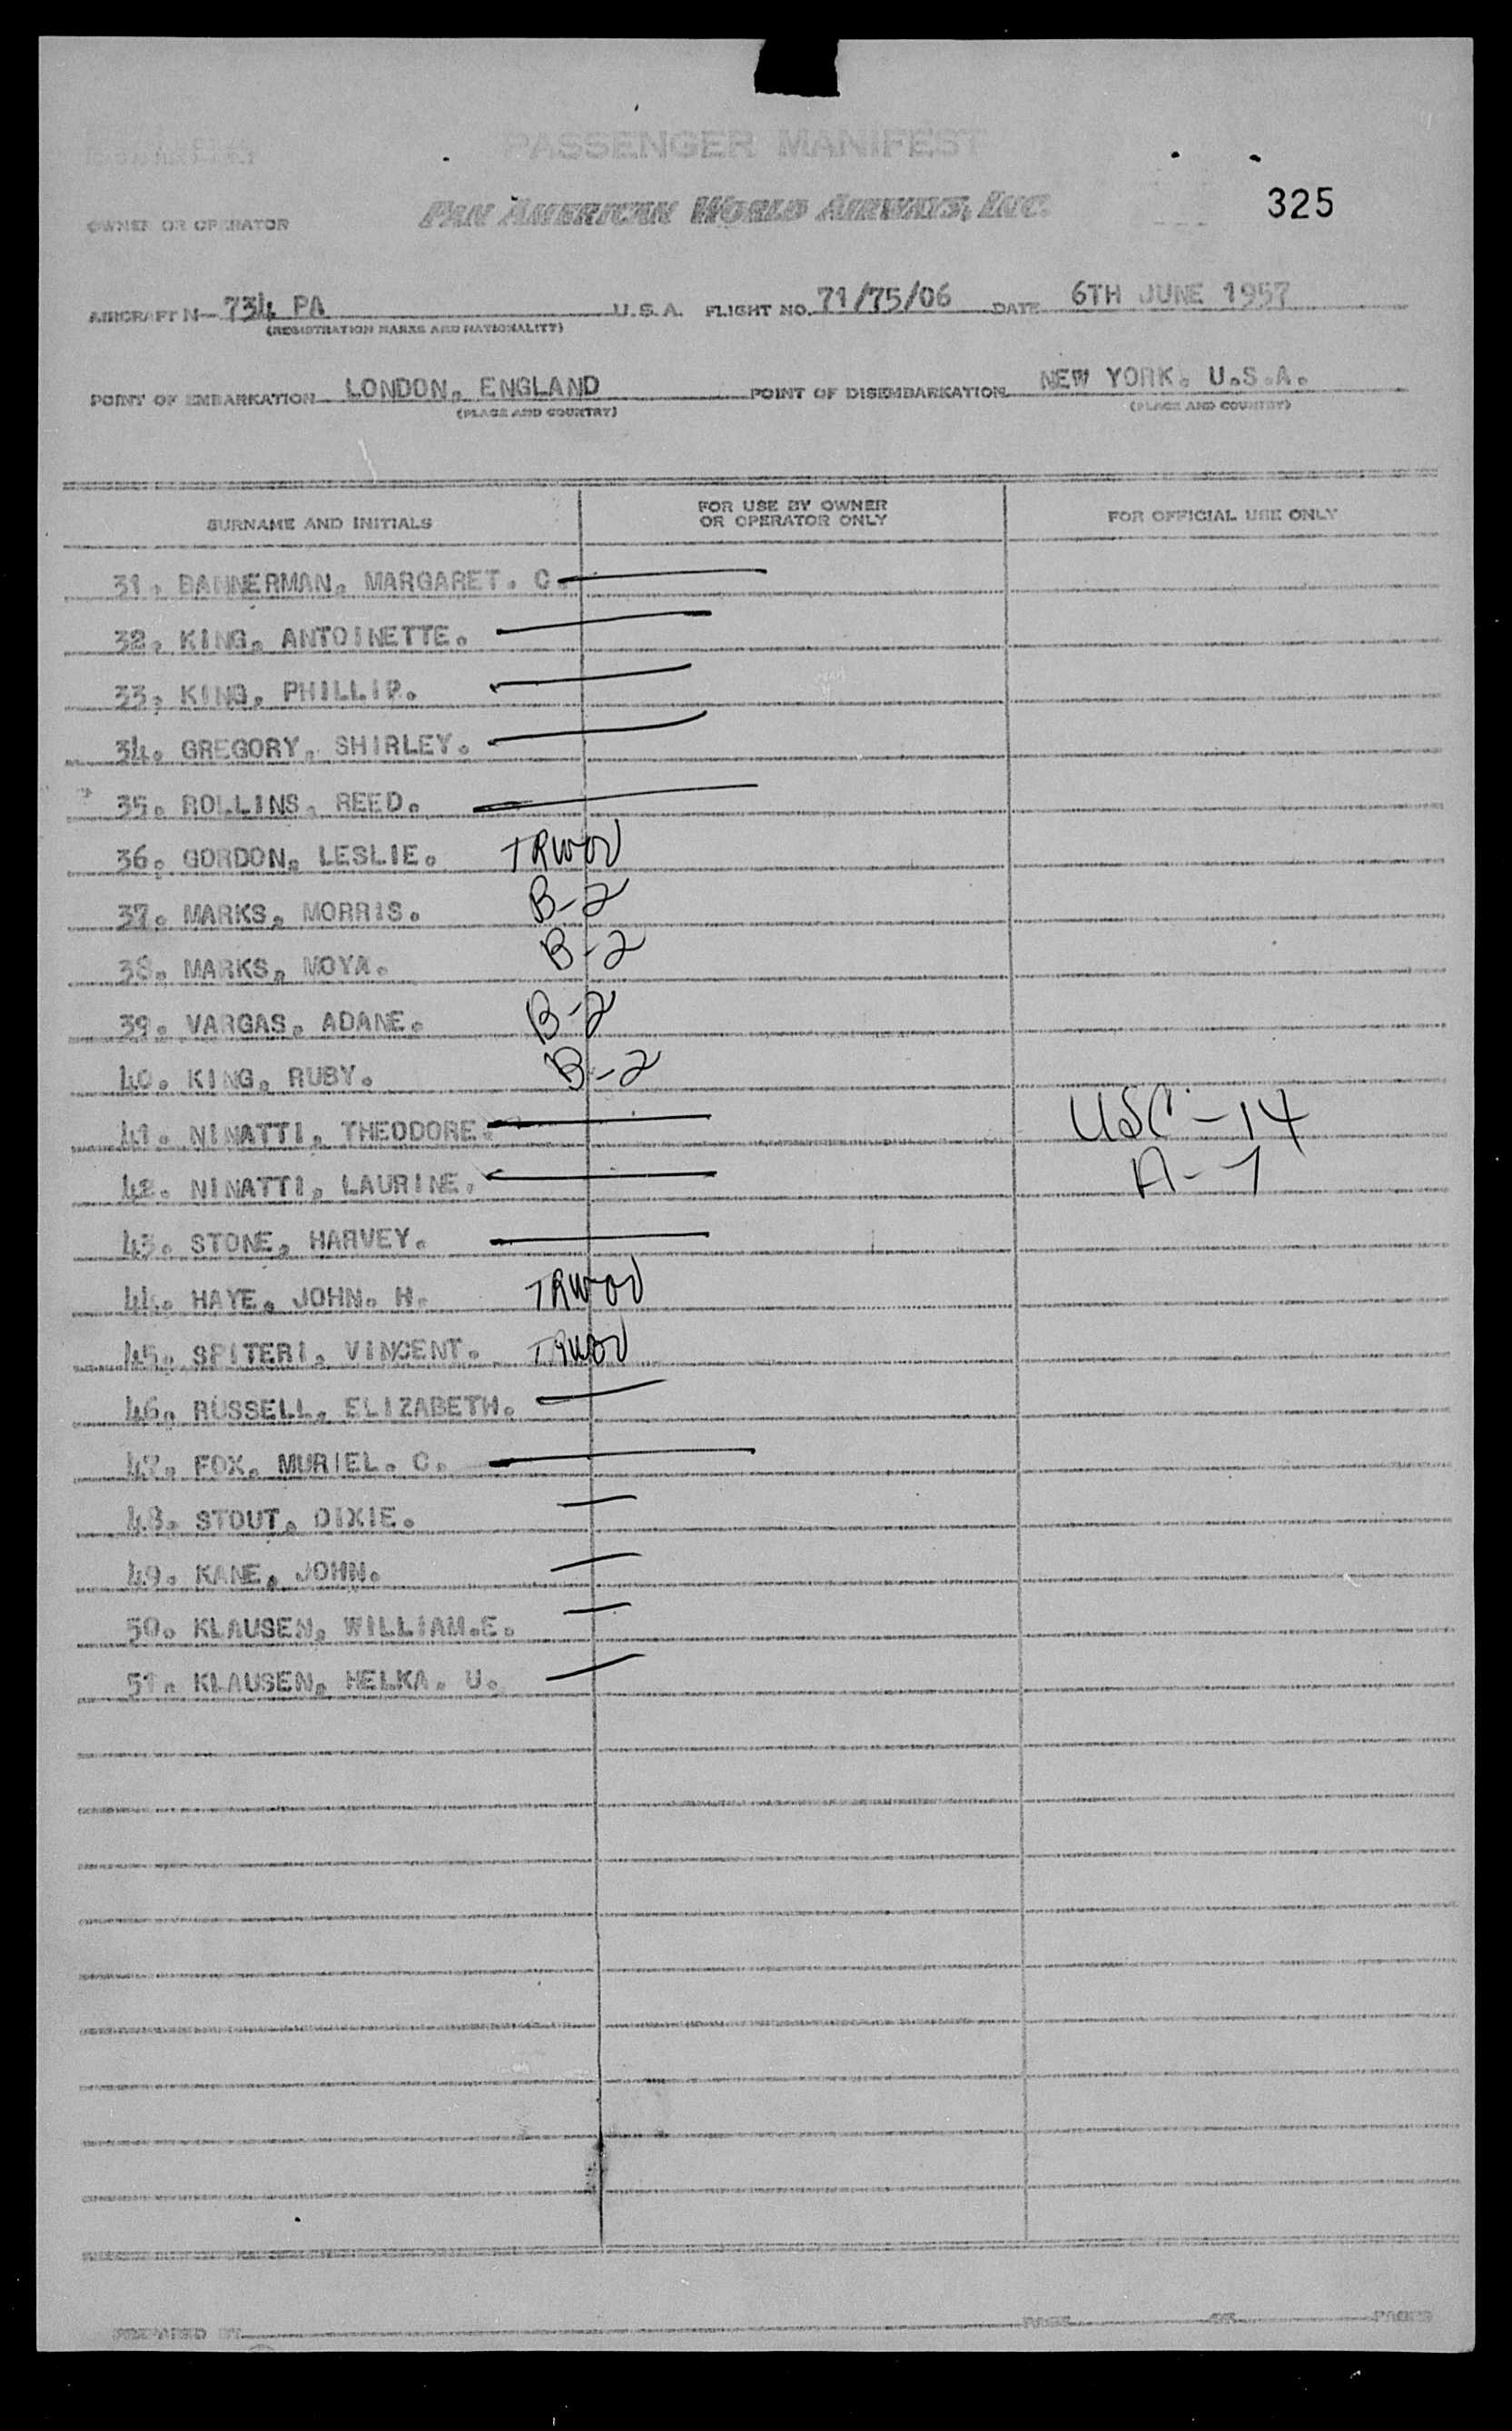 PASSENGER MANIFEST
OWNER OR OPERATOR PAN AMERICAN WORLD AIRWAYS, INC. 325
AIRCRAFT N- 734 PA U.S.A. FLIGHT NO. 71/75/06 DATE 6TH JUNE 1957
(REGISTRATION MARKS AND NATIONALITY)
POINT OF EMBARKATION LONDON, ENGLAND POINT OF DISEMBARKATION NEW YORK. U.S.A.
(PLACE AND COUNTRY) (PLACE AND COUNTRY)
SURNAME AND INITIALS FOR USE BY OWNER OR OPERATOR ONLY FOR OFFICIAL USE ONLY
31. BANNERMAN, MARGARET. C.
32, KING, ANTOINETTE.
33, KING, PHILLIP.
34. GREGORY, SHIRLEY.
35. ROLLINS, REED.
36. GORDON, LESLIE. TRWOV
37. MARKS, MORRIS. B-2
38. MARKS, MOYA. B-2
39. VARGAS, ADANE. B-2
40. KING, RUBY. B-2
41. NINATTI, THEODORE. USC-14
42. NINATTI, LAURINE. A-7
43. STONE, HARVEY.
44. HAYE, JOHN. H. TRWOV
45. SPITERI, VINCENT. TRWOV
46. RUSSELL, ELIZABETH.
47. FOX, MURIEL. C.
48. STOUT, DIXIE.
49. KANE, JOHN.
50. KLAUSEN, WILLIAM.E.
51. KLAUSEN, HELKA. U.
PREPARED BY PAGE OF PAGES